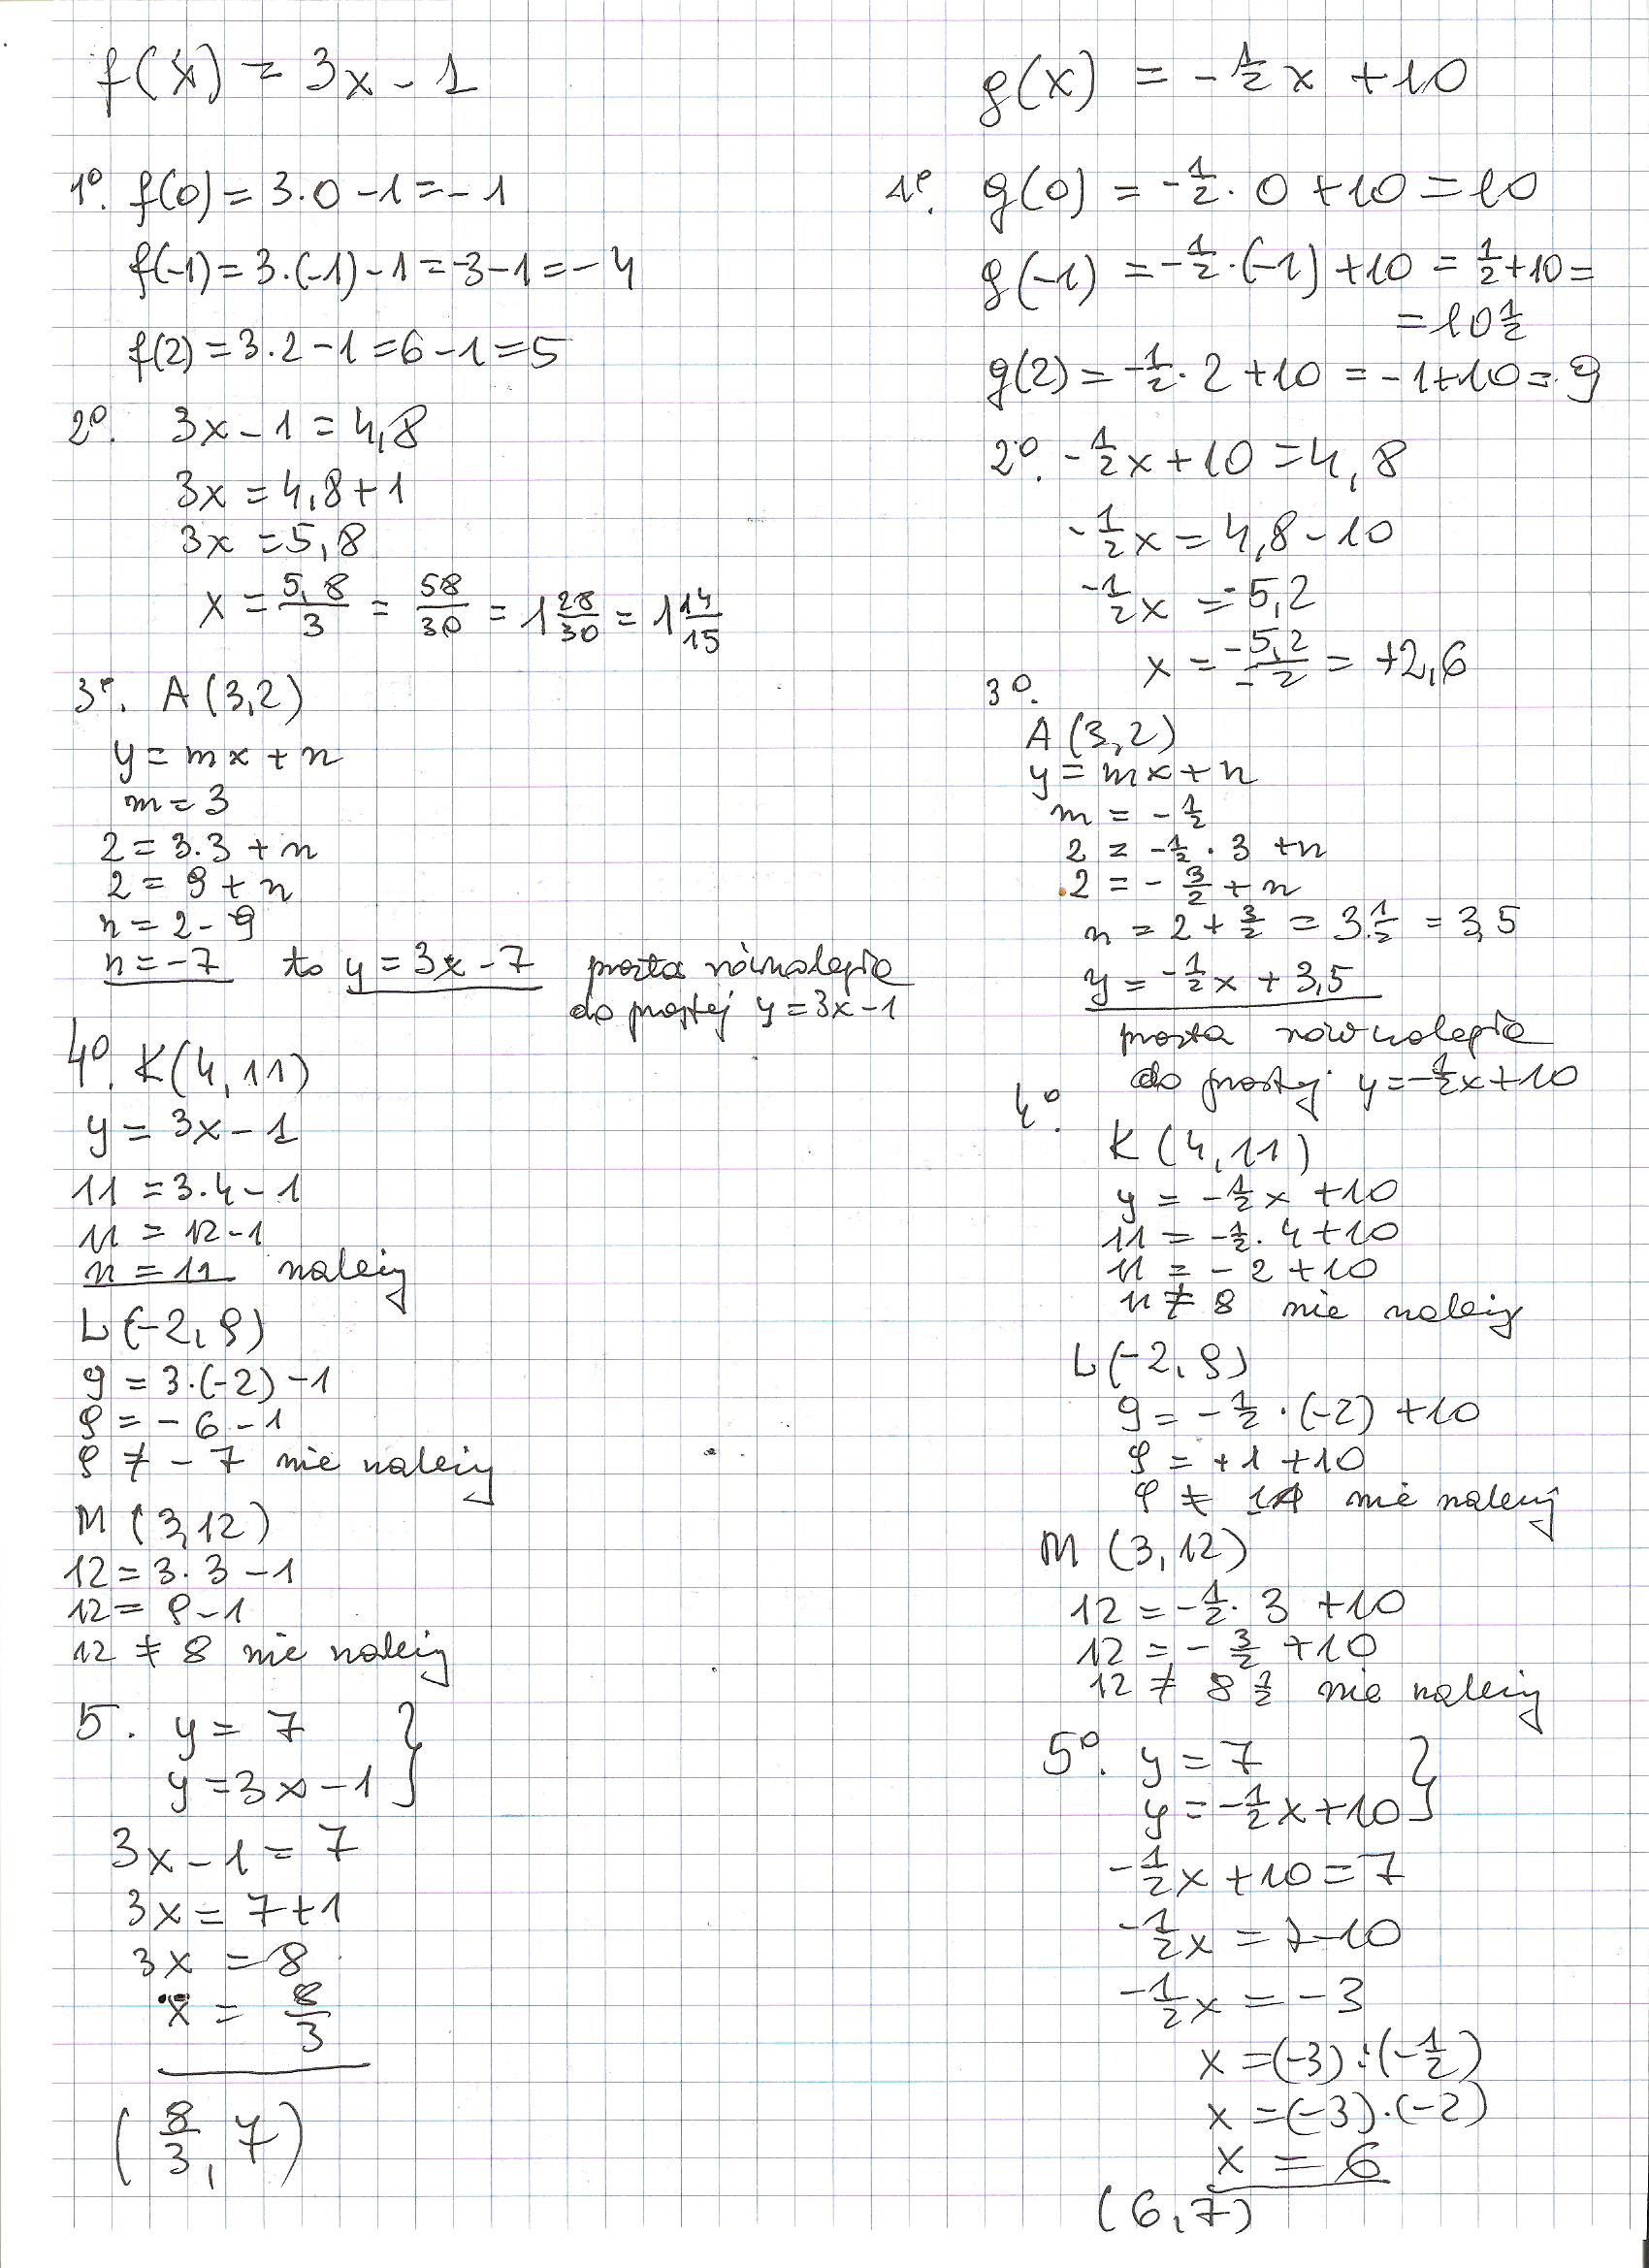 f(x) = 3x - 1
1°. f(0) = 3·0 - 1 = -1
f(-1) = 3·(-1) - 1 = -3 - 1 = -4
f(2) = 3·2 - 1 = 6 - 1 = 5
2°. 3x - 1 = 4,8
3x = 4,8 + 1
3x = 5,8
x = 5,8/3 = 58/30 = 1 28/30 = 1 14/15
3°. A (3,2)
y = mx + n
m = 3
2 = 3·3 + n
2 = 9 + n
n = 2 - 9
n = -7 to y = 3x - 7 prosta równoległa
do prostej y = 3x - 1
4°. K(4,11)
y = 3x - 1
11 = 3·4 - 1
11 = 12 - 1
11 = 11 należy
L(-2,9)
9 = 3·(-2) - 1
9 = -6 - 1
9 ≠ -7 nie należy
M (3,12)
12 = 3·3 - 1
12 = 9 - 1
12 ≠ 8 nie należy
5. y = 7
y = 3x - 1 }
3x - 1 = 7
3x = 7 + 1
3x = 8
x = 8/3
(8/3, 7)
g(x) = -1/2 x + 10
1°. g(0) = -1/2 · 0 + 10 = 10
g(-1) = -1/2 · (-1) + 10 = 1/2 + 10 =
= 10 1/2
g(2) = -1/2 · 2 + 10 = -1 + 10 = 9
2°. -1/2 x + 10 = 4,8
-1/2 x = 4,8 - 10
-1/2 x = -5,2
x = -5,2/-2 = +2,6
3°.
A (3,2)
y = mx + n
m = -1/2
2 = -1/2 · 3 + n
2 = -3/2 + n
n = 2 + 3/2 = 3 1/2 = 3,5
y = -1/2 x + 3,5
prosta równoległa
do prostej y = -1/2 x + 10
4°.
K (4,11)
y = -1/2 x + 10
11 = -1/2 · 4 + 10
11 = -2 + 10
11 ≠ 8 nie należy
L(-2,9)
9 = -1/2 · (-2) + 10
9 = +1 + 10
9 ≠ 11 nie należy
M (3,12)
12 = -1/2 · 3 + 10
12 = -3/2 + 10
12 ≠ 8 1/2 nie należy
5°. y = 7
y = -1/2 x + 10 }
-1/2 x + 10 = 7
-1/2 x = 7 - 10
-1/2 x = -3
x = (-3) : (-1/2)
x = (-3)·(-2)
x = 6
(6,7)